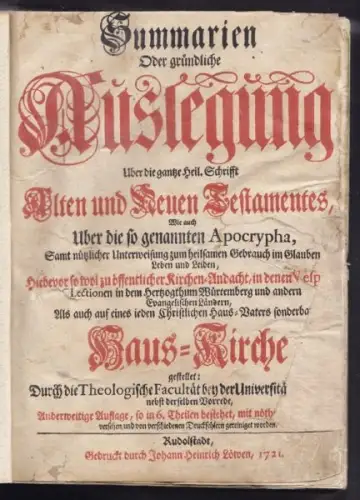 Summarien
Oder gründliche
Auslegung
Uber die gantze Heil. Schrifft
Alten und Neuen Testamentes,
Wie auch
Uber die so genannten Apocrypha,
Samt nützlicher Unterweisung zum heilsamen Gebrauch im Glauben
Leben und Leiden,
Hiebevor so wol zu öffentlicher Kirchen-Andacht, in denen Vesp
Lectionen in dem Hertzogthum Würtemberg und andern
Evangelischen Ländern,
Als auch auf eines ieden Christlichen Haus-Vaters sonderba
Haus-Kirche
gestellet:
Durch die Theologische Facultät bey der Universitä
nebst derselben Vorrede,
Anderweitige Auflage, so in 6. Theilen bestehet, mit nöth
versehen und von verschiedenen Druckfehlern gereiniget worden.
Rudolstadt,
Gedruckt durch Johann Heinrich Löwen, 1721.